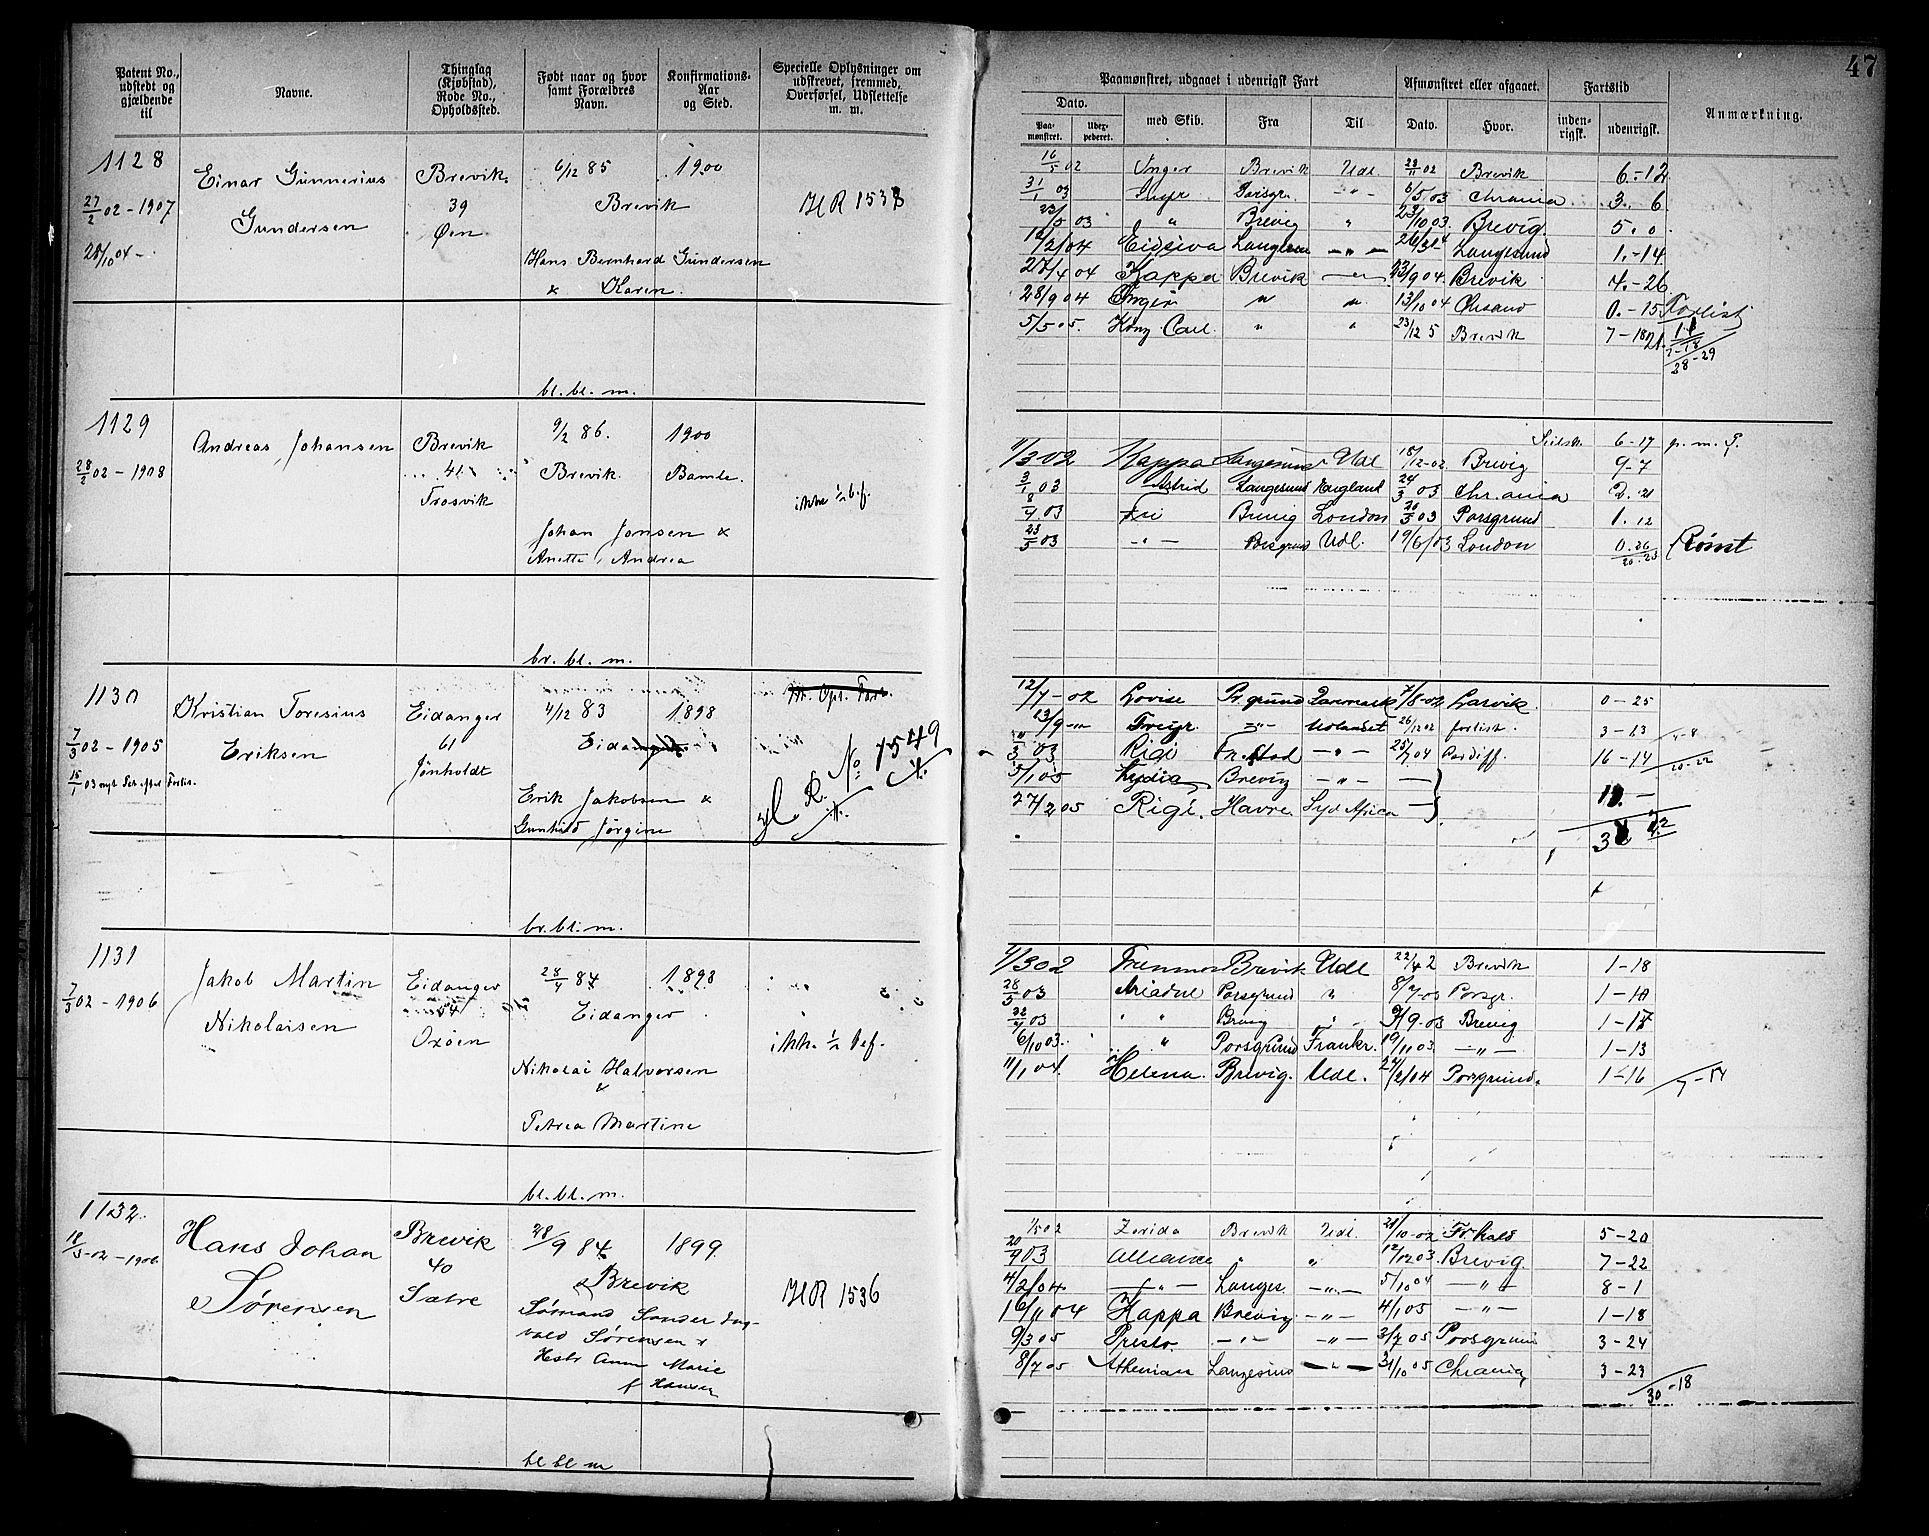 47
Patent No., udstedt og gjældende til
Navne.
Thinglag (Kjøbstad), Rode No., Opholdssted.
Født naar og hvor samt Forældres Navn.
Konfirmations-Aar og Sted.
Specielle Oplysninger om udskrevet, fremmed, Overførsel, Udslettelse m. m.
Paamønstret, udgaaet i udenrigsk Fart
Afmønstret eller afgaaet.
Fartstid
Anmærkning.
Dato.
Paa-mønstret.
Udex-pederet.
med Skib.
Fra
Til
Dato.
Hvor.
inden-rigsk.
udenrigsk.
1128
27/2 02 - 1907
28/10 04 -
Einar Gunnerius
Gundersen
Brevik
39
Øen
6/12 85
1900
Brevik
Hans Bernhard Gundersen
& Karen.
bl. bl. m.
16/5 02 Inger Brevik Udl. Brevik 6.-12
31/1 03 Porsgr. - " - 6/5 03 Chrania 3. 6
23/5 03 " Brevig " 23/10 03 Brevig. 5. 0
12/2 04 Eidsiva - " - Langesund 1.-14
27/4 04 Kappa Brevik 23/9 04 Brevik 4.-26
28/9 04 Inger " " 13/10 04 Chrsand 0.-15 Forlist
5/5 05. Kong Carl " " 23/12 5 Brevik 7-18
28-29
1129
28/2 02 - 1908
Andreas Johansen
Brevik
41
Trosvik
9/2 86.
1900
Brevik.
Bamle.
ikke 1/2 bef.
Johan Jonsen &
Anette Andrea
br. bl. m.
Seilsk. 6-17 p. m. P.
11/3 02 Kappa Langesund Udl 18/12-02 Brevig 9-7
3/1 03 Astrid Langesund England 24/3 03 Chr.ania 2. 21
8/4 03 Fri Brevig London 20/5 03 Porsgrund 1. 12
23/5 03 - " - Porsgrund Udl. 19/6/03 London 0. 26 Rømt
20. 23
1130
7/3 02 - 1905
15/1 03 nyt Ser. efter Forlis.
Kristian Toresius
Eriksen
Eidanger
61
Jønholdt
4/12 83
1898
Eidanger
Erik Jakobsen &
Gunhild Jørgine
No 1549
br. bl. m.
12/7 - 02 Lovise P.grund Danemark 7/8-02 Larvik 0-25
13/9 - " Freyr - " - Udlandet 26/12 02 forlist. 3-13 4-8
3/3 03 Rigi Fr.stad - " - 25/7 04 Cardiff. 16-14 20-22
5/1 05 Lydia Brevig - " -
27/2 05 Rigi. Havre Syd Africa
1131
7/3 02 - 1906
Jakob Martin
Nikolaisen
Eidanger
54
Oxøen
28/4 84
1898
Eidanger
ikke 1/2 bef.
Nikolai Halvorsen
&
Petrea Martine
bl. bl. m.
4/3 02 Brevik Udl 22/4 2 Brevik 1-18
28/5 03 Ariadne Porsgrund " 8/7-03 Porsgr. 1-10
22/7 03 " " Brevig " 9/9-03 Brevig 1-17
6/10 03. " Porsgrund Frankr. 19/11 03. - " - 1-13
11/1 04. Helena. Brevig. Udl. 27/2/04 Porsgrund. 1-16
7-14
1132.
18/3-02-1906
Hans Johan
Sørensen
Brevik
40
Sætre
28/9 84
1899
Brevik
HR 1536
Sømand Sander Dag-
vald Sørensen &
Hstr Anna Marie
f Hansen
bl bl m
1/5 02 Zerida Brevik Udl. 21/10-02 Fr.hald 5-20
20/4 03 Alliance " " 12/12 03. Brevig. 7-22
4/2/04. - " - Langes. - " - 5/10 04 - " - 8-1
16/11 04 Kappa Brevig - " - 4/1 05 - " - 1-18
9/3 05 Presto. - " - - " - 3/7 05 Porsgrund 3-24
8/7 05 Athenian Langesund - " - 31/10 05 Chrania 3-23
30-18